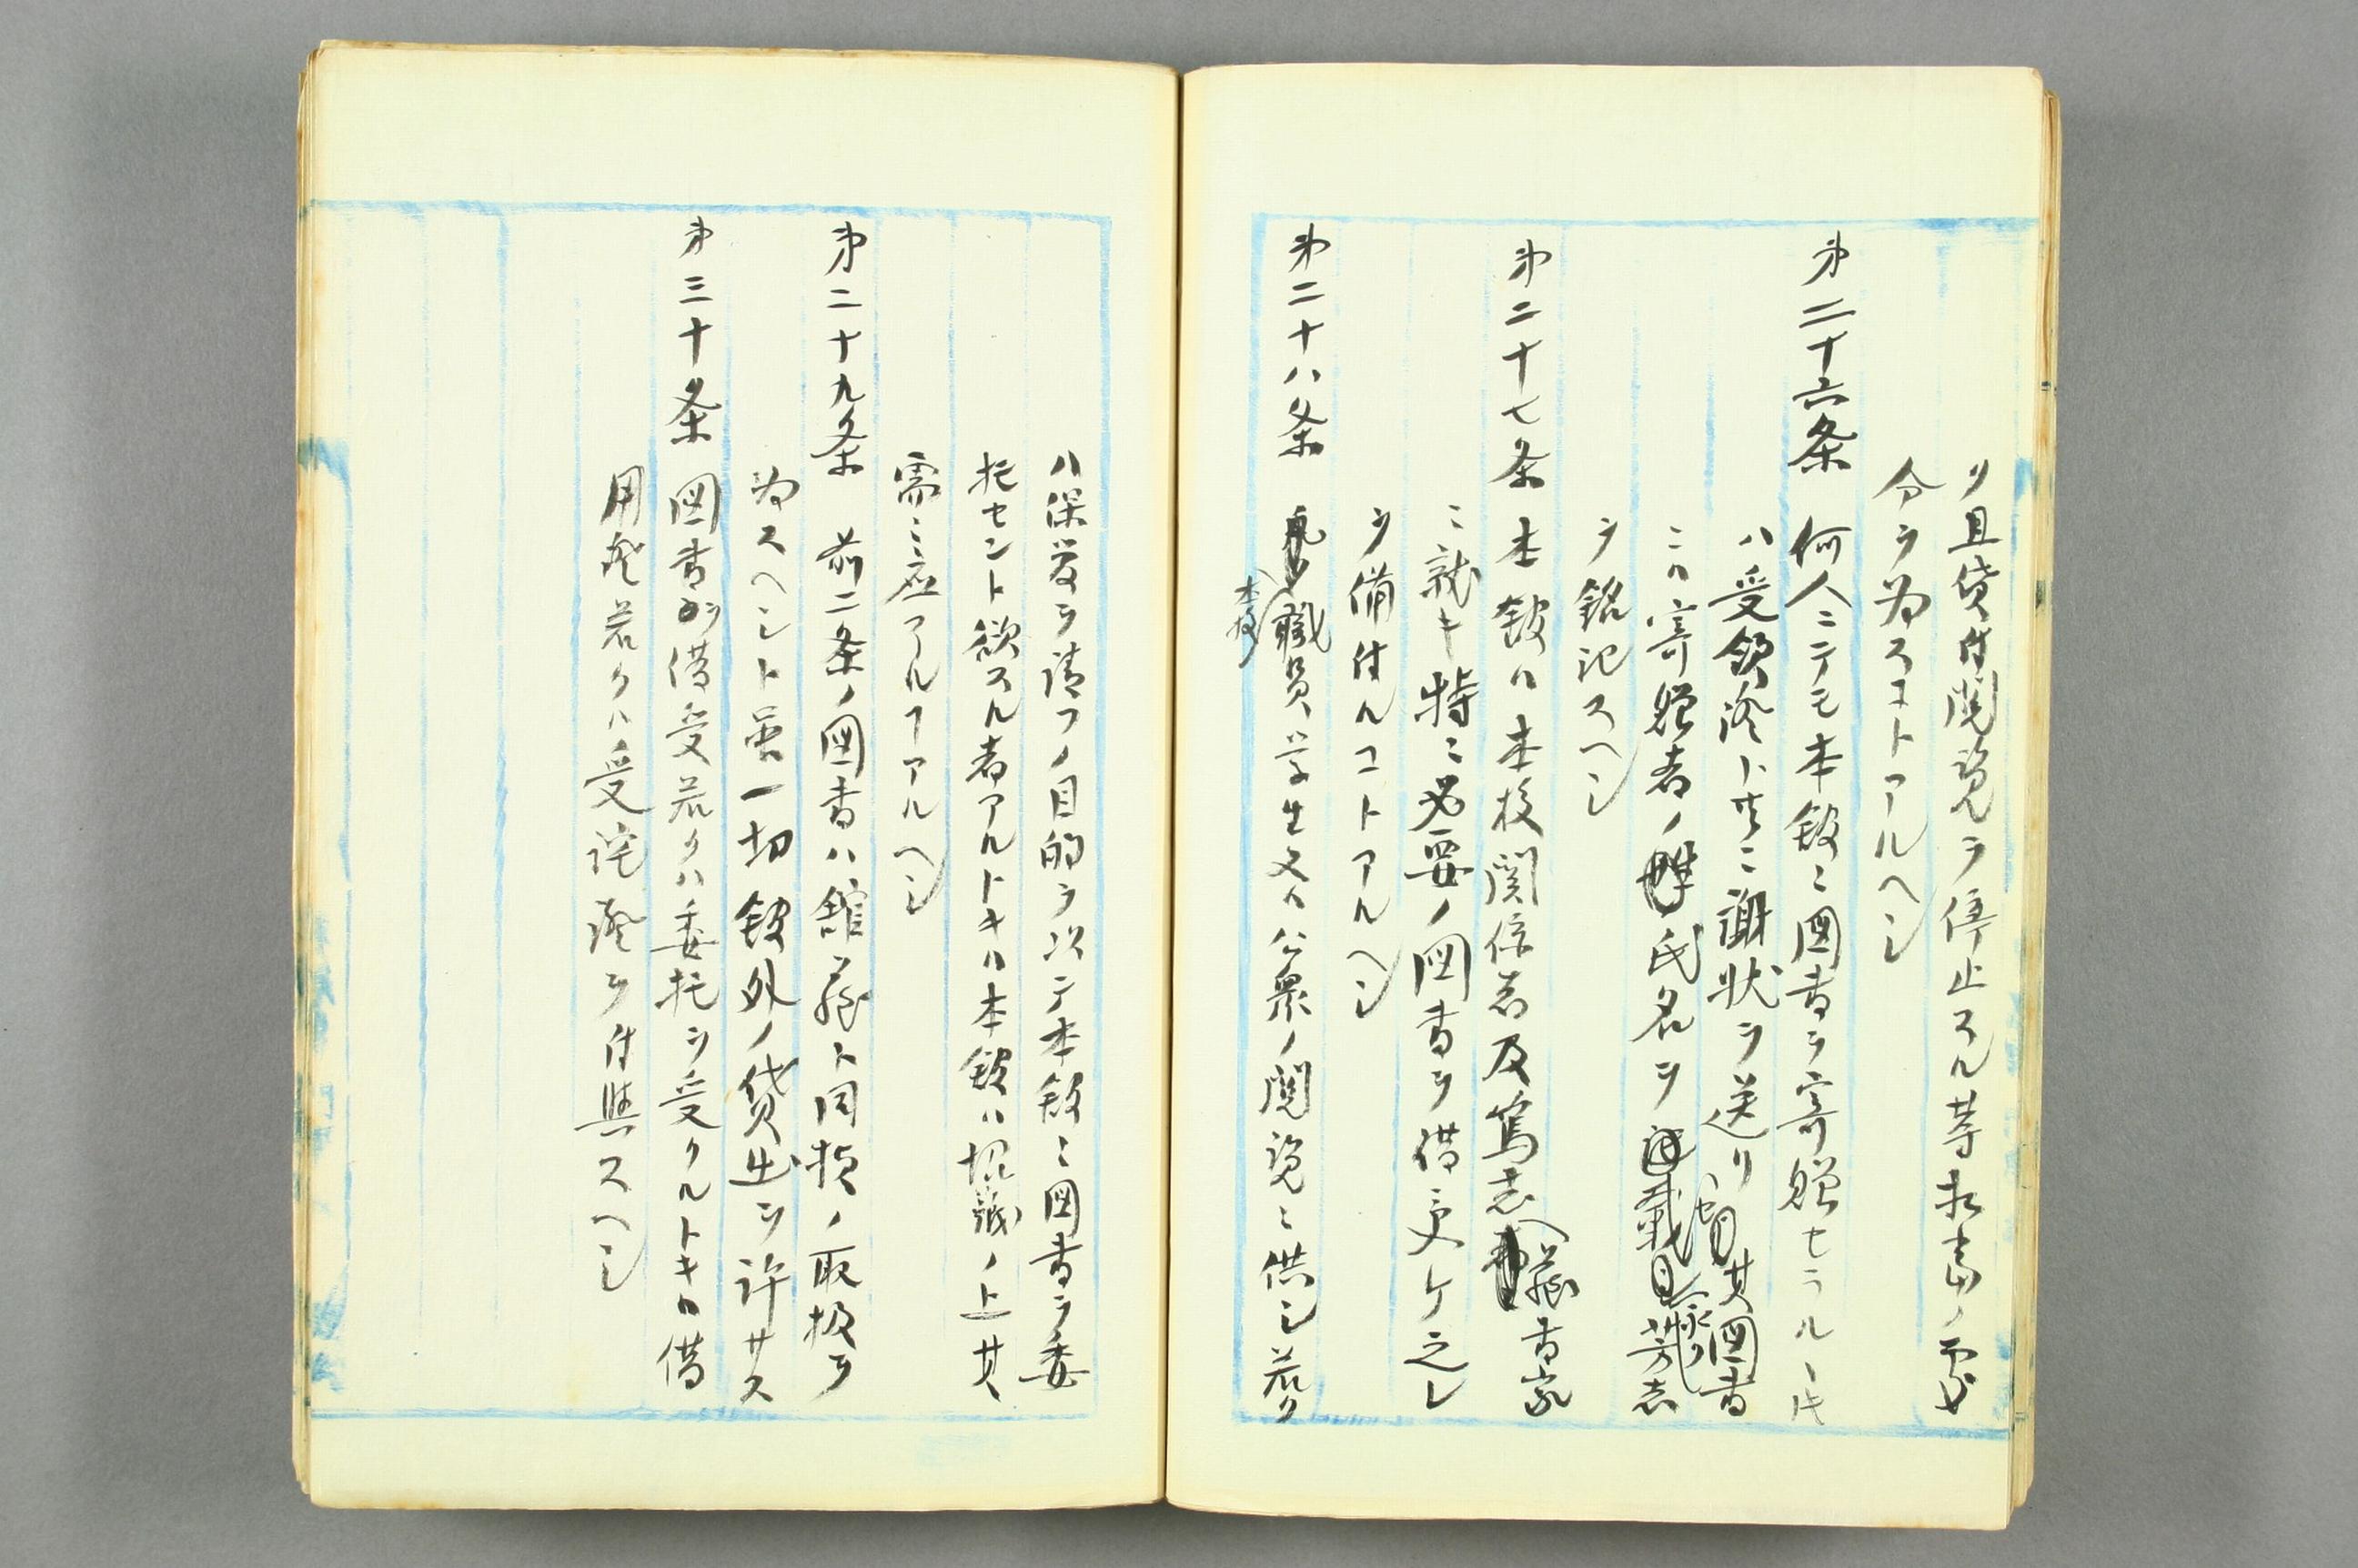 リ且貸付閲覧ヲ停止スル等相当ノ処
分ヲ為スコトアルヘシ
第二十六条 何人ニテモ本館ニ図書ヲ寄贈セラルヽ氏
ハ受領証ト共ニ謝状ヲ送リ 其図書
ニハ寄贈者ノ 氏名ヲ 芳志
ヲ銘記スヘシ
第二十七条 本館ハ本校関係者及篤志 蔵書家
ニ就キ特ニ必要ノ図書ヲ借受ケ之レ
ヲ備付ルコトアルヘシ
第二十八条 本校職員学生又ハ公衆ノ閲覧ニ供シ若ク
ハ保管ヲ請フノ目的ヲ以テ本館ニ図書ヲ委
托セント欲スル者アルトキハ本館ハ 上其
需ニ応アルヿアルヘシ
第二十九条 前二条ノ図書ハ館蔵ト同様ノ取扱ヲ
為スヘシト雖一切館外ノ貸出ヲ許サス
第三十条 図書ヲ借受若クハ委托ヲ受クルトキハ借
用証若クハ受託証ヲ付與スヘシ